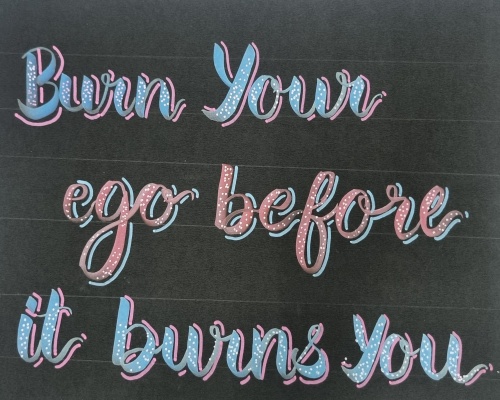 Burn Your
ego before
it burns you